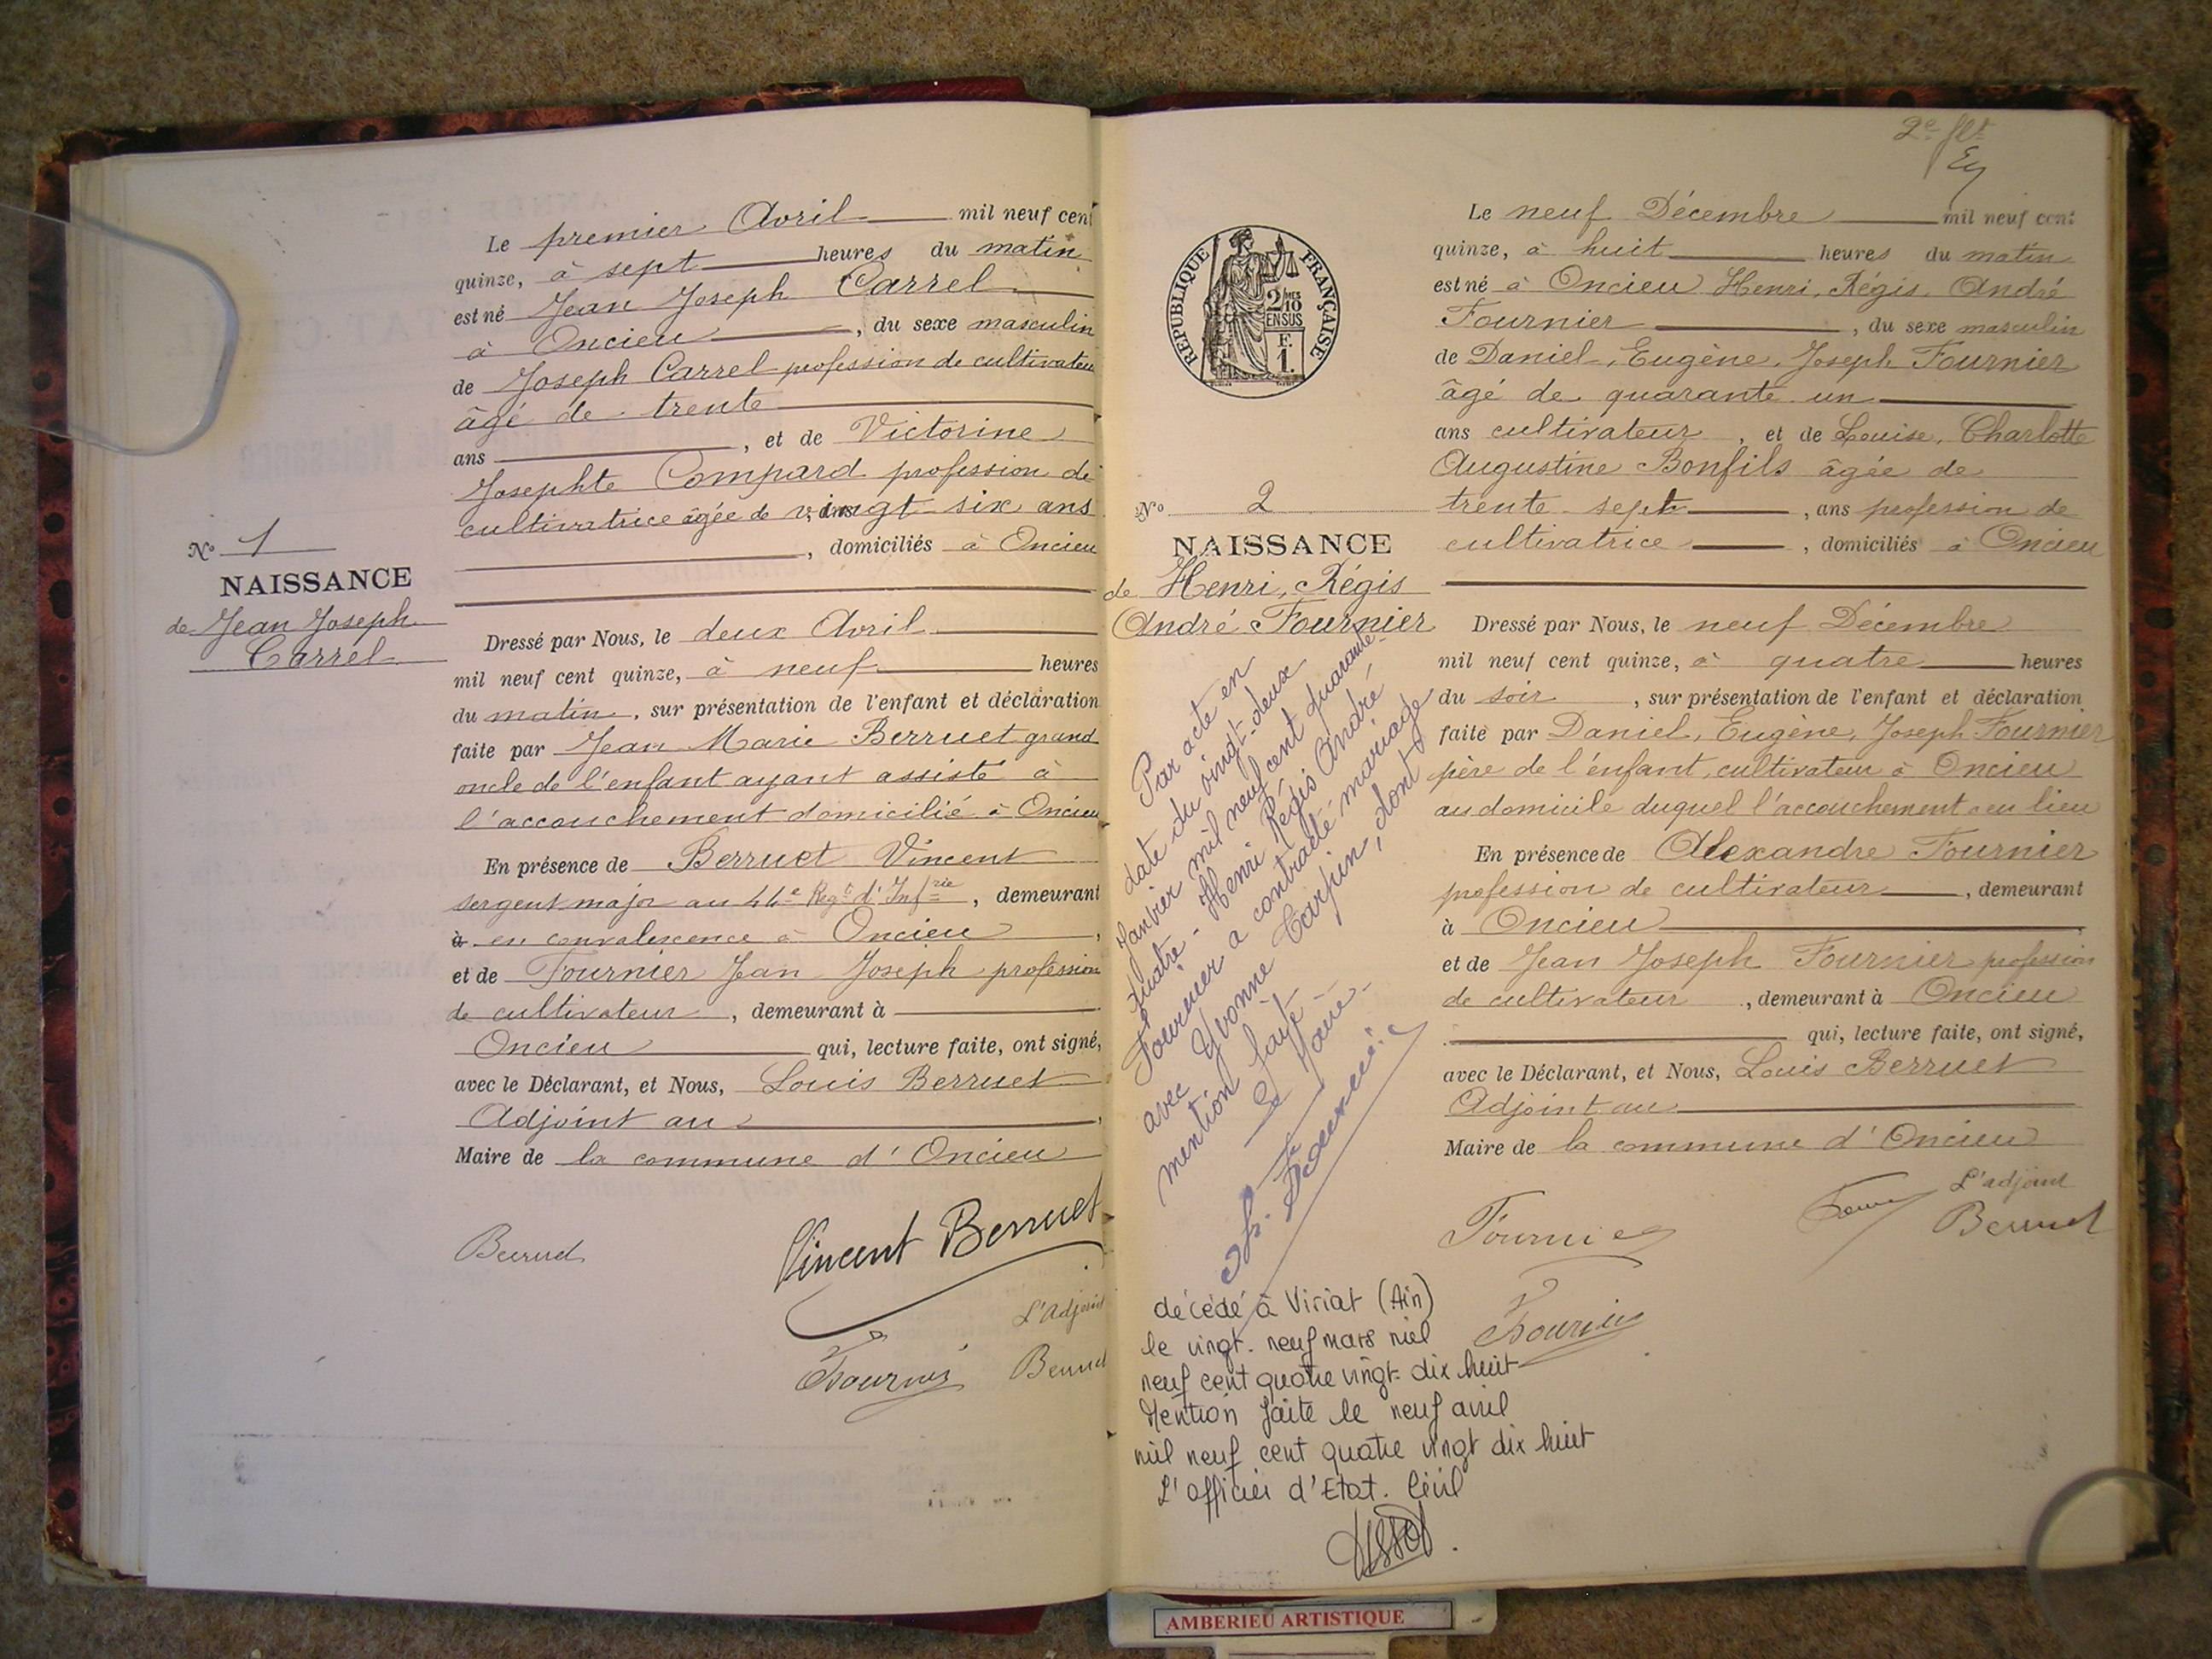 Le premier Avril mil neuf cent
quinze, à sept heures du matin
est né Jean Joseph Carrel
à Oncieu, du sexe masculin
de Joseph Carrel profession de cultivateur
âgé de trente
ans, et de Victorine
Josephte Compard profession de
cultivatrice âgée de vingt-six ans
, domiciliés à Oncieu
N° 1
NAISSANCE
de Jean Joseph
Carrel
Dressé par Nous, le deux Avril
mil neuf cent quinze, à neuf heures
du matin, sur présentation de l'enfant et déclaration
faite par Jean Marie Berruet grand
oncle de l'enfant ayant assisté à
l'accouchement domicilié à Oncieu
En présence de Berruet Vincent
sergent major au 44e Regt d'Infrie, demeurant
à en convalescence à Oncieu,
et de Fournier Jean Joseph profession
de cultivateur, demeurant à
Oncieu qui, lecture faite, ont signé,
avec le Déclarant, et Nous, Louis Berruet
Adjoint au,
Maire de la commune d'Oncieu
Berruet
Vincent Berruet
L'Adjoint
Fournier Berruet
2e flt
REPUBLIQUE FRANÇAISE
2/10MES
EN SUS
F.
1.
N° 2
NAISSANCE
de Henri, Régis
André Fournier
Par acte en
date du vingt-deux
Janvier mil neuf cent quarante-
quatre - Henri Régis André
Fournier a contracté mariage
avec Yvonne Carpin, dont
mention faite
Le Maire -
décédé à Viriat (Ain)
le vingt-neuf mars mil
neuf cent quatre vingt-dix huit
Mention faite le neuf avril
mil neuf cent quatre vingt dix huit
L'officier d'Etat-Civil
Le neuf Décembre mil neuf cent
quinze, à huit heures du matin
est né à Oncieu Henri, Régis, André
Fournier, du sexe masculin
de Daniel, Eugène, Joseph Fournier
âgé de quarante un
ans cultivateur, et de Louise, Charlotte
Augustine Bonfils âgée de
trente-sept, ans profession de
cultivatrice, domiciliés à Oncieu
Dressé par Nous, le neuf Décembre
mil neuf cent quinze, à quatre heures
du soir, sur présentation de l'enfant et déclaration
faite par Daniel, Eugène, Joseph Fournier
père de l'enfant, cultivateur à Oncieu
au domicile duquel l'accouchement a eu lieu
En présence de Alexandre Fournier
profession de cultivateur, demeurant
à Oncieu
et de Jean Joseph Fournier profession
de cultivateur, demeurant à Oncieu
qui, lecture faite, ont signé,
avec le Déclarant, et Nous, Louis Berruet
Adjoint au
Maire de la commune d'Oncieu
L'adjoint
Fournier Berruet
Fournier
AMBERIEU ARTISTIQUE